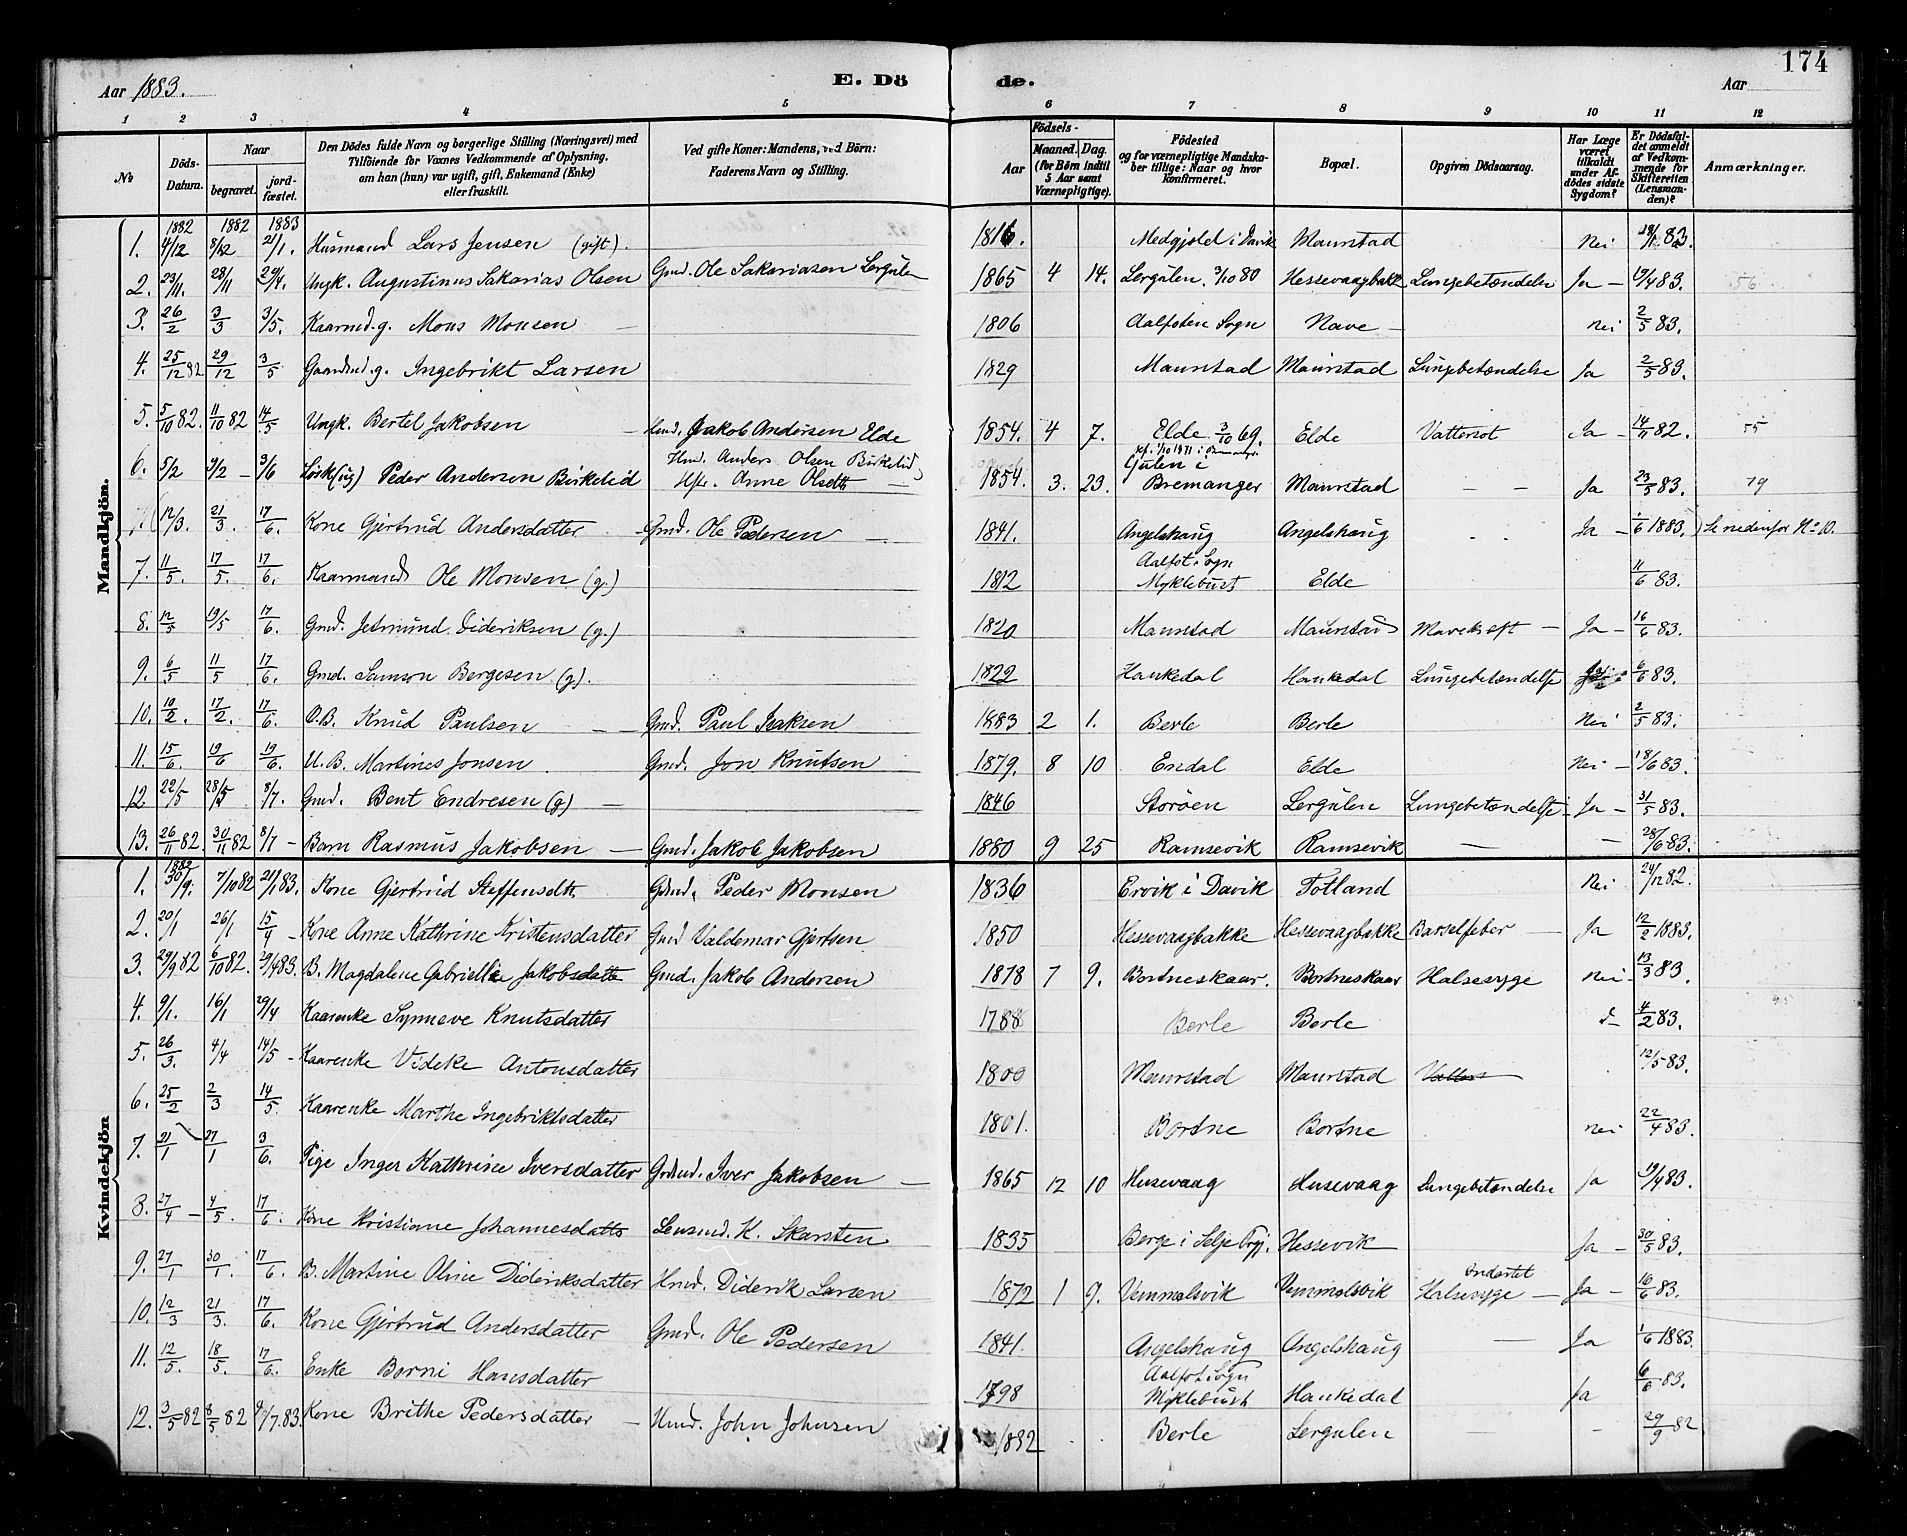 174
Aar 1883. E. Dö de. Aar
1 2 3 4 5 6 7 8 9 10 11 12
№ Döds-Datum. Naar begravet. jord-fæstet. Den Dödes fulde Navn og borgerlige Stilling (Næringsvei) med Tilföiende for Voxnes Vedkommende af Oplysning, om han (hun) var ugift, gift, Enkemand (Enke) eller fraskilt. Ved gifte Koner: Mandens, ved Börn: Faderens Navn og Stilling. Födsels- Aar Maaned. Dag. (for Børn indtil 5 Aar samt Værnepligtige). Födested og for værnepligtige Mandska-ber tillige: Naar og hvor Konfirmeret. Bopæl. Opgiven Dödsaarsag. Har Læge været tilkaldt under Af-dödes sidste Sygdom? Er Dödsfal-det anmeldt af Vedkom-mende for Skifteretten (Lensman-den)? Anmærkninger.
Mandkjön.
1882 1882 1883
1. 4/12 8/12 21/1. Husmand Lars Jensen (gift). 1816. Medgjøld i Davik Maurstad Nei 83.
2. 23/11. 28/11 29/4. Ungk. Augustinus Sakarias Olsen Gmd. Ole Sakariasen Lergulen 1865 4 14. Lergulen. 3/10 80 Hessevaagbakk Lungebetændelse Ja – 19/4 83. 56
3. 26/2 3/3 3/5. Kaarmd. g. Mons Monsen – 1806 Aalfoten Sogn Nave – nei 2/5 83.
4. 25/12 82 29/12 3/5 Gaardmd. g. Ingebrikt Larsen 1829 Maurstad Maurstad Lungebetændelse Ja 2/5 83.
5. 5/10 82. 11/10 82 14/5 Ungk. Bertel Jakobsen – Hmd. Jakob Andersen Elde 1854. 4 7. Elde 3/10 69. Elde Vattersot Ja – 14/11 82. 55
6. 5/2 9/2 – 3/6 Løsk (ug) Peder Andersen Birkelid Hmd. Anders Olsen Birkelid Hfr. Anne Olsdtr – 1854. 3. 23. Gulen i Bremanger Maurstad – – Ja 23/5 83. 79
12/3. 21/3. 17/6. Kone Gjertrud Andersdatter – Gmd. Ole Pedersen – 1841. Angelshaug Angelshaug Ja – 1/6 1883. Se nedenfor No 10.
7. 11/5. 17/5. 17/6. Kaarmand Ole Monsen (g.) 1812 Aalfot Sogn Myklebust Elde 11/6 83.
8. 12/5 19/5 17/6. Gmd. Jetmund Dideriksen (g.) 1820 Maurstad Maurstad Mavekræft – Ja – 16/6 83.
9. 6/5 11/5 17/6. Gmd. Samson Børgesen (g). 1822 Haukedal Haukedal Lungebetændelse 6/6 83.
10. 10/2. 17/2. 17/6. U.B. Knud Paulsen – – Gmd. Paul Isaksen 1883 2 1. Berle Berle Nei 2/5 83.
11. 15/6. 19/6 19/6. U.B. Martines Jonsen Gmd. Jon Knutsen 1879. 8 10 Endal Elde Nei – 18/6 83.
12 22/5 28/5 8/7. Gmd. Bent Endresen (g) – 1846 Storøen Lergulen Lungebetændelse Ja – 31/5 83.
13. 26/11 82 30/11 82 8/7 – Barn Rasmus Jakobsen – Gmd. Jakob Jakobsen 1880 9 25 Ramsevik Ramsevik – – 28/6 83.
Kvindekjön
1882
1. 30/9. 7/10 82 21/1 83. Kone Gjertrud Steffensdtr Gdmd. Peder Monsen 1836 Ervik i Davik Totland Nei 24/12 82.
2. 20/1 26/1 15/4 – Kone Anne Kathrine Kristensdatter Gmd Valdemar Gjertsen 1850 Hessevaagbakke Hessevaagbakke Barselfeber – Ja 12/2 1883.
3. 29/9 82 6/10 82. 29/4 83. B. Magdalene Gabrielle Jakobsdatter Gmd. Jakob Andersen 1878 7 9. Bortneskaar. Bortneskaar Halsesyge nei – 13/3 83.
4. 9/1. 16/1 29/4 Kaarenke Synneve Knutsdatter 1788 Berle Berle d– 4/2 83. 95
5. 26/3. 4/4 14/5 – Kaarenke Videke Antonsdatter 1800 Maurstad Maurstad 12/5 83.
6. 25/2 2/3 14/5 Kaarenke Marthe Ingebriktsdatter 1801. Bortne Bortne nei 22/4 83.
7. 21/1 27/1 3/6. Pige Inger Kathrine Iversdatter Grdmd. Iver Jakobsen – 1865 12 10 Husevaag Husevaag Lungebetændelse Ja 19/4 83.
8. 27/4 – 4/5. 17/6. Kone Kristiane Johannesdatter Lensmd. K. Skarsten 1835 Berge i Selje Prgj. Hessevik Ja – 30/5 83.
9. 27/1 30/1. 17/6. B. Martine Oline Dideriksdatter Hmd. Diderik Larsen 1872 1 9. Vemmelsvik Vemmelsvik ondartet Halsesyge – Ja – 16/6 83.
10. 12/3 21/3. 17/6. Kone Gjertrud Andersdatter Gmd. Ole Pedersen 1841. Angelshaug Angelshaug – Ja 1/6 1883.
11. 12/5. 18/5. 17/6. Enke Børni Hansdatter 1798 Aalfot Sogn Myklebust Haukedal Ja 6/6 83.
12. 3/5 82 8/5 82 9/7.83. Kone Brithe Pedersdatter – Hmd. John Johnsen 1832 Berle Lergulen – – 29/9 82